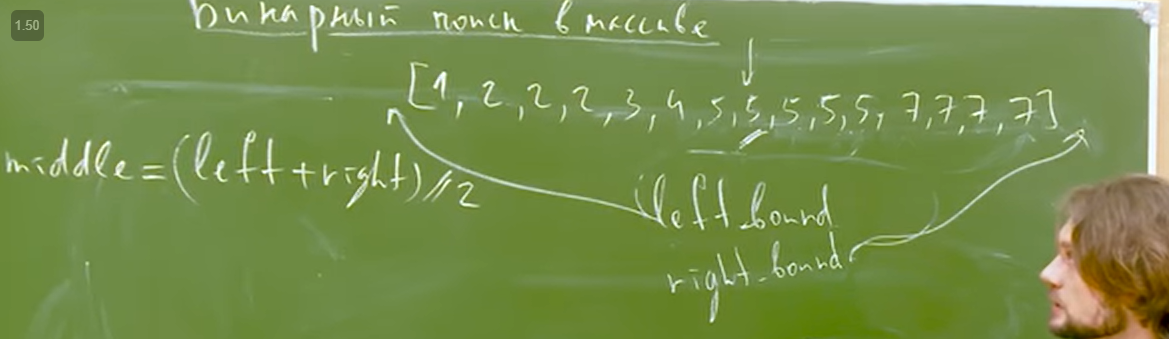 1.50
Бинарный поиск в массиве
[1, 2, 2, 2, 3, 4, 5, 5, 5, 5, 5, 7, 7, 7, 7]
middle=(left+right)//2
left_bound
right_bound